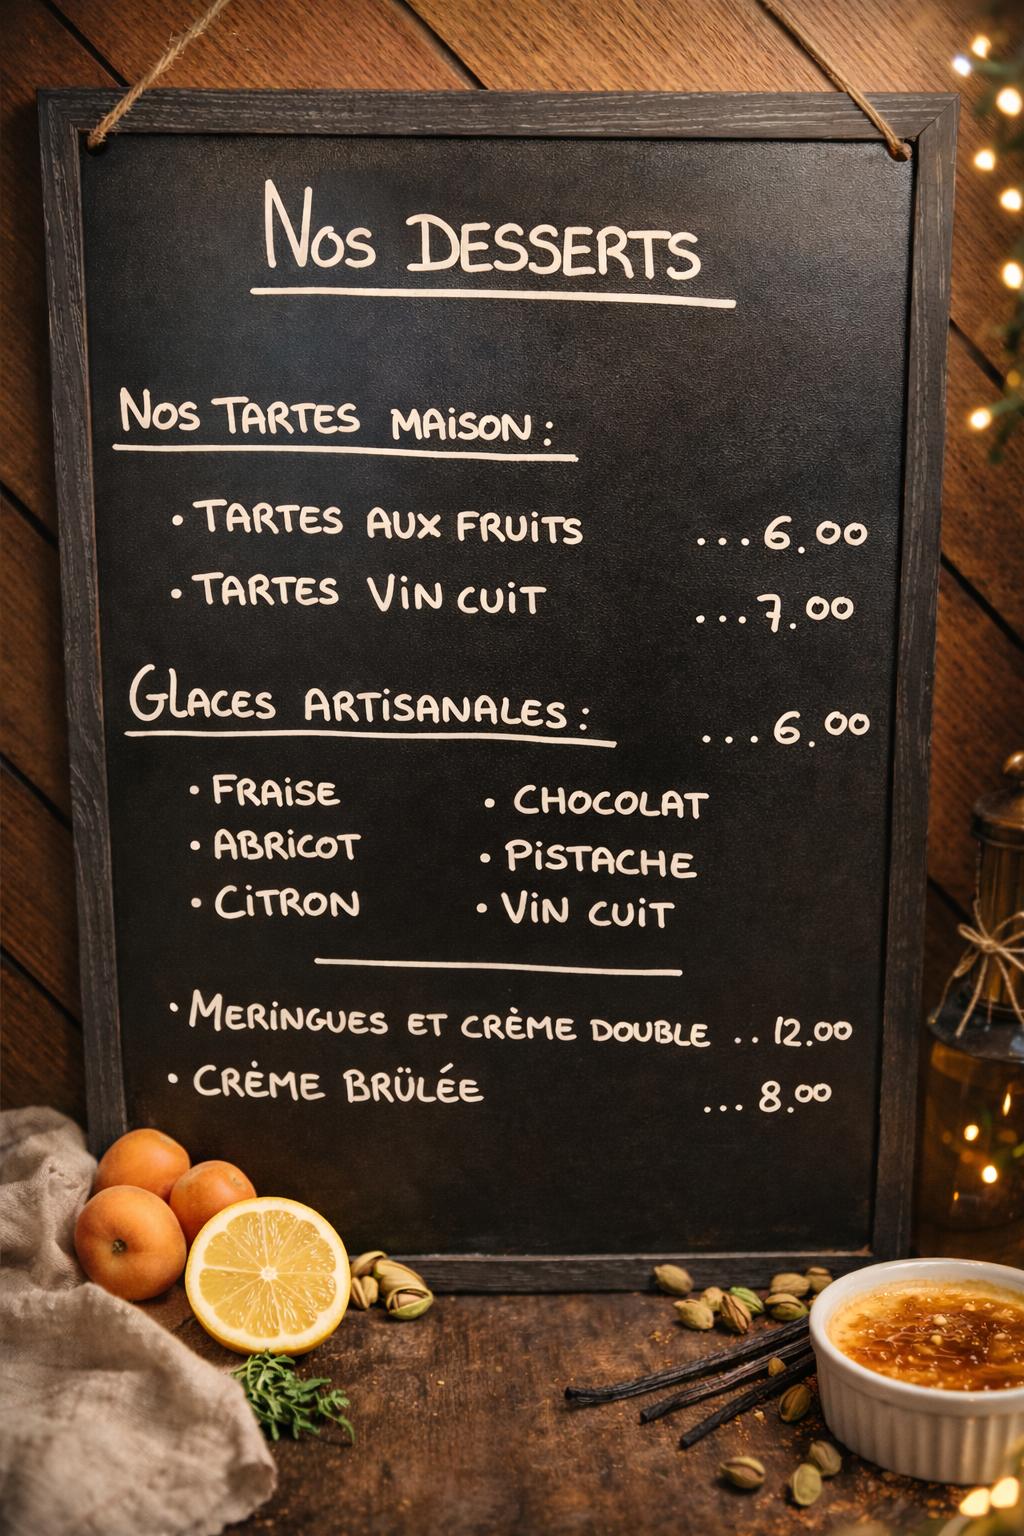 Nos DESSERTS
Nos TARTES MAiSON :
• TARTES AUX FRUiTS ...6.00
• TARTES ViN CUiT ...7.00
GLACES ARTiSANALES : ...6.00
• FRAiSE • CHOCOLAT
• ABRiCOT • PiSTACHE
• CiTRON • ViN CUiT
• MERiNGUES ET CRÈME DOUBLE ..12.00
• CRÈME BRÜLÉE ...8.00